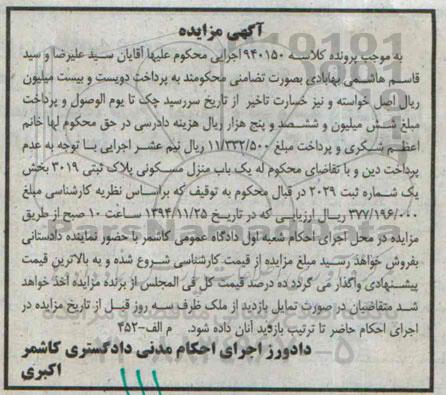 آگهی مزایده
به موجب پرونده کلاسه ۹۴۰۱۵۰ اجرایی محکوم علیها آقایان سید علیرضا و سید
قاسم هاشمی بهابادی بصورت تضامنی محکومند به پرداخت دویست و بیست میلیون
ریال اصل خواسته و نیز خسارت تاخیر از تاریخ سررسید چک تا یوم الوصول و پرداخت
مبلغ شش میلیون و ششصد و پنج هزار ریال هزینه دادرسی در حق محکوم لها خانم
اعظم شکری و پرداخت مبلغ ۱۱/۳۳۲/۵۰۰ ریال نیم عشر اجرایی با توجه به عدم
پرداخت دین و با تقاضای محکوم له یک باب منزل مسکونی پلاک ثبتی ۳۰۱۹ بخش
یک شماره ثبت ۲۰۳۹ در قبال محکوم به توقیف که براساس نظریه کارشناسی مبلغ
۳۷۷/۱۹۶/۰۰۰ ریال ارزیابی که در تاریخ ۱۳۹۴/۱۱/۲۵ ساعت ۱۰ صبح از طریق
مزایده در محل اجرای احکام شعبه اول دادگاه عمومی کاشمر با حضور نماینده دادستانی
بفروش خواهد رسید مبلغ مزایده از قیمت کارشناسی شروع شده و به بالاترین قیمت
پیشنهادی واگذار می گردد ده درصد قیمت کل فی المجلس از برنده مزایده اخذ خواهد
شد متقاضیان در صورت تمایل بازدید از ملک ظرف سه روز قبل از تاریخ مزایده در
اجرای احکام حاضر تا ترتیب بازدید آنان داده شود. م الف-۴۵۲
دادورز اجرای احکام مدنی دادگستری کاشمر
اکبری